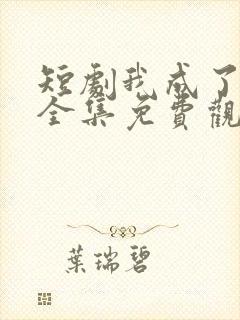 短劇我成了
全集免費觀
葉瑞碧